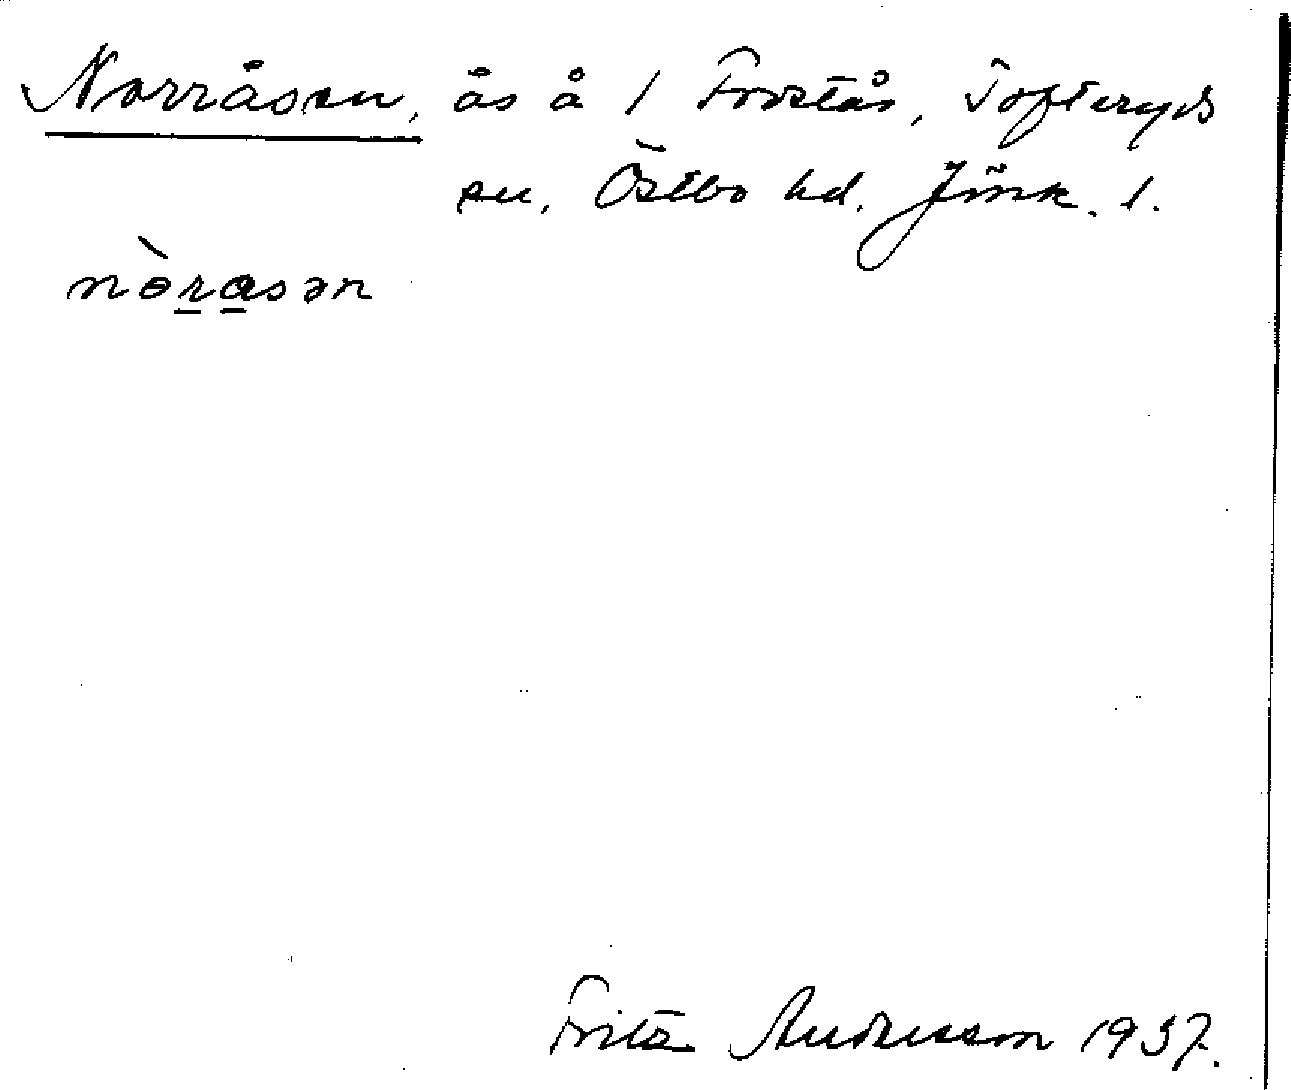 Norråsen, ås å 1 Frostås, Tofteryds
sn, Östbo hd. Jönk. l.
nòrasən
Fritz Andersson 1937.